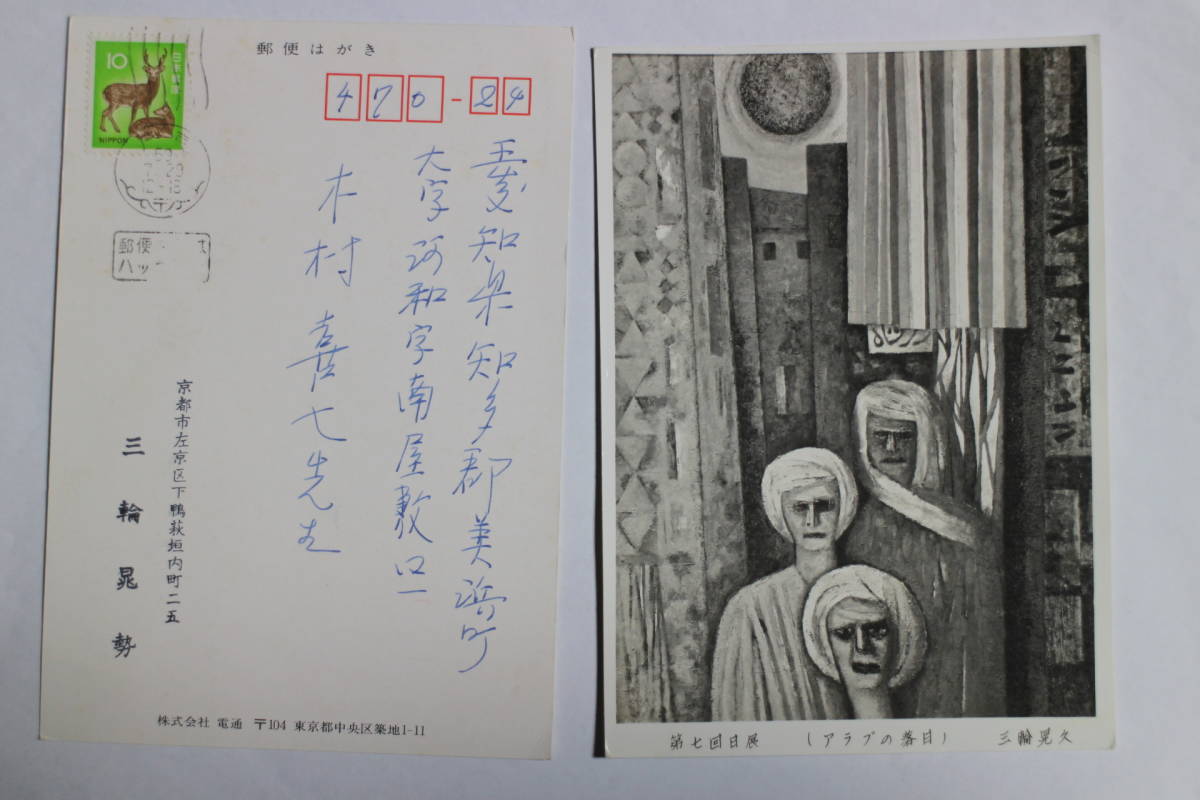 郵便はがき
10
日本郵便
NIPPON
470-24
愛知県知多郡美浜町
大字河和字南屋敷口一
木村喜七先生
郵便
ハッ
京都市左京区下鴨萩垣内町二五
三輪晁勢
株式会社 電通 〒104 東京都中央区築地1-11
第七回日展 (アラブの落日) 三輪晃久